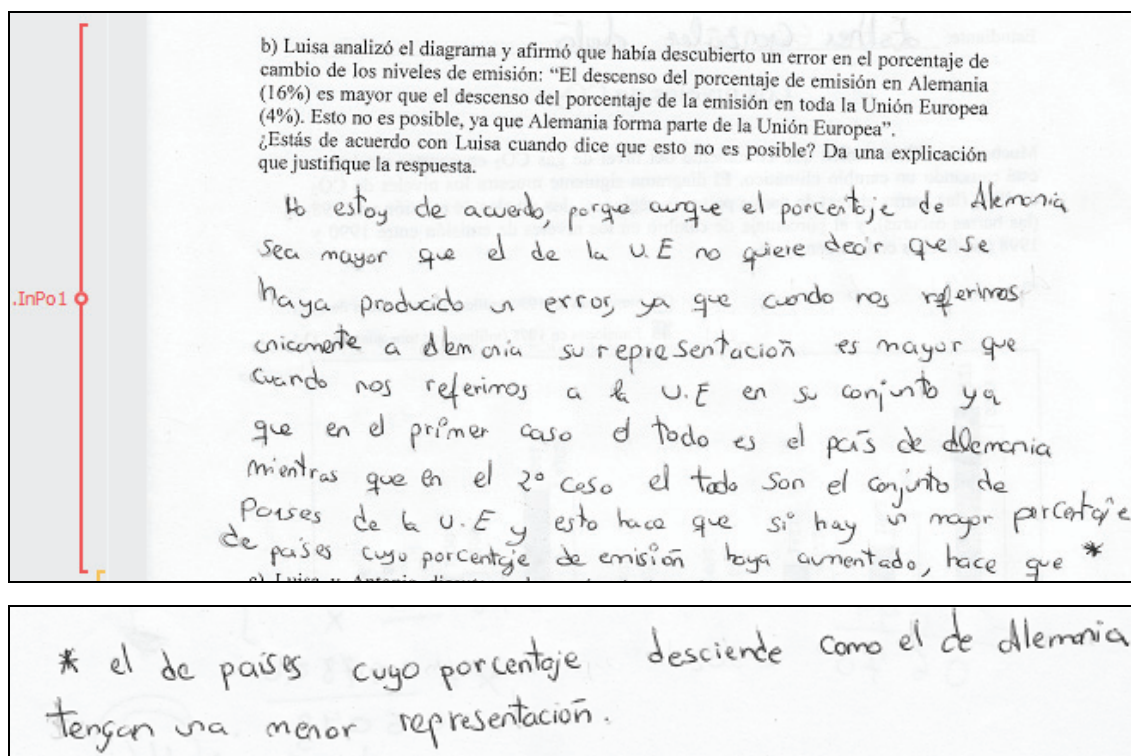 b) Luisa analizó el diagrama y afirmó que había descubierto un error en el porcentaje de
cambio de los niveles de emisión: “El descenso del porcentaje de emisión en Alemania
(16%) es mayor que el descenso del porcentaje de la emisión en toda la Unión Europea
(4%). Esto no es posible, ya que Alemania forma parte de la Unión Europea”.
¿Estás de acuerdo con Luisa cuando dice que esto no es posible? Da una explicación
que justifique la respuesta.
No estoy de acuerdo, porque aunque el porcentaje de Alemania
sea mayor que el de la U.E no quiere decir que se
.InPo1
haya producido un error, ya que cuando nos referimos
unicamente a Alemania su representación es mayor que
cuando nos referimos a la U.E en su conjunto ya
que en el primer caso el todo es el país de Alemania
mientras que en el 2º caso el todo son el conjunto de
Países de la U.E y esto hace que si hay un mayor porcentaje
de países cuyo porcentaje de emisión haya aumentado, hace que *
* el de países cuyo porcentaje desciende como el de Alemania
tengan una menor representación.